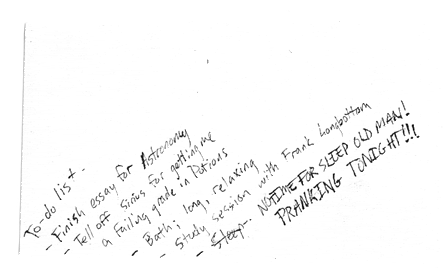 To-do list -
- Finish essay for Astronomy
- Tell off Sirius for getting me
a failing grade in Potions
- Bath; long, relaxing
- Study session with Frank Longbottom
- Sleep - NO TIME FOR SLEEP OLD MAN!
PRANKING TONIGHT!!!